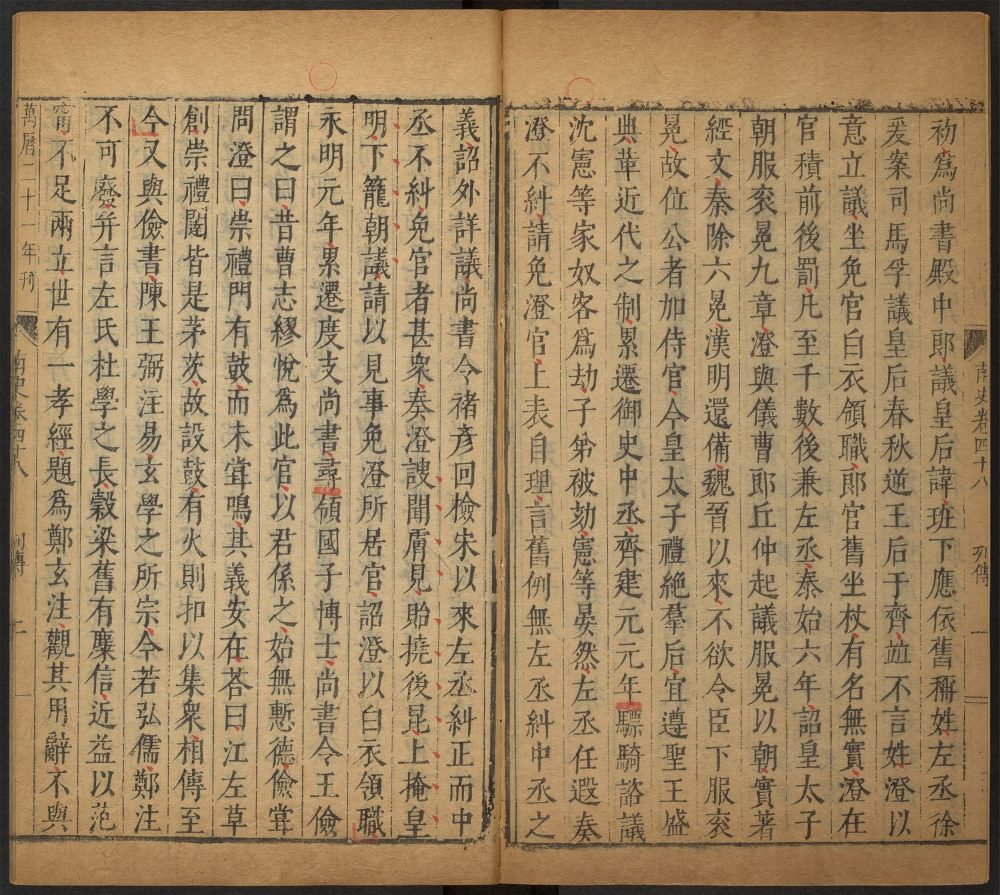 南史卷四十八
列傳
一
初爲尚書殿中郎議皇后諱班下應依舊稱姓左丞徐
爰案司馬孚議皇后春秋逆王后于齊並不言姓澄以
意立議坐免官白衣領職郎官舊坐杖有名無實澄在
官積前後罰凡至千數後兼左丞泰始六年詔皇太子
朝服衮冕九章澄與儀曹郎丘仲起議服冕以朝實著
經文秦除六冕漢明還備魏晉以來不欲令臣下服衮
冕故位公者加侍官今皇太子禮絶羣后宜遵聖王盛
典革近代之制累遷御史中丞齊建元元年驃騎諮議
沈憲等家奴客爲劫子弟被劾憲等晏然左丞任遐奏
澄不糾請免澄官上表自理言舊例無左丞糾中丞之
義詔外詳議尚書令褚彦回檢宋以來左丞糾正而中
丞不糾免官者甚衆奏澄謏聞膚見貽撓後昆上掩皇
明下籠朝議請以見事免澄所居官詔澄以白衣領職
永明元年累遷度支尚書尋領國子博士尚書令王儉
謂之曰昔曹志繆悅爲此官以君係之始無慙德儉嘗
問澄曰崇禮門有鼓而未嘗鳴其義安在荅曰江左草
創崇禮闥皆是茅茨故設鼓有火則扣以集衆相傳至
今又與儉書陳王弼注易玄學之所宗今若弘儒鄭注
不可廢并言左氏杜學之長穀梁舊有麋信近益以范
甯不足兩立世有一孝經題爲鄭玄注觀其用辭不與
萬曆二十一年刊
南史卷四十八
列傳